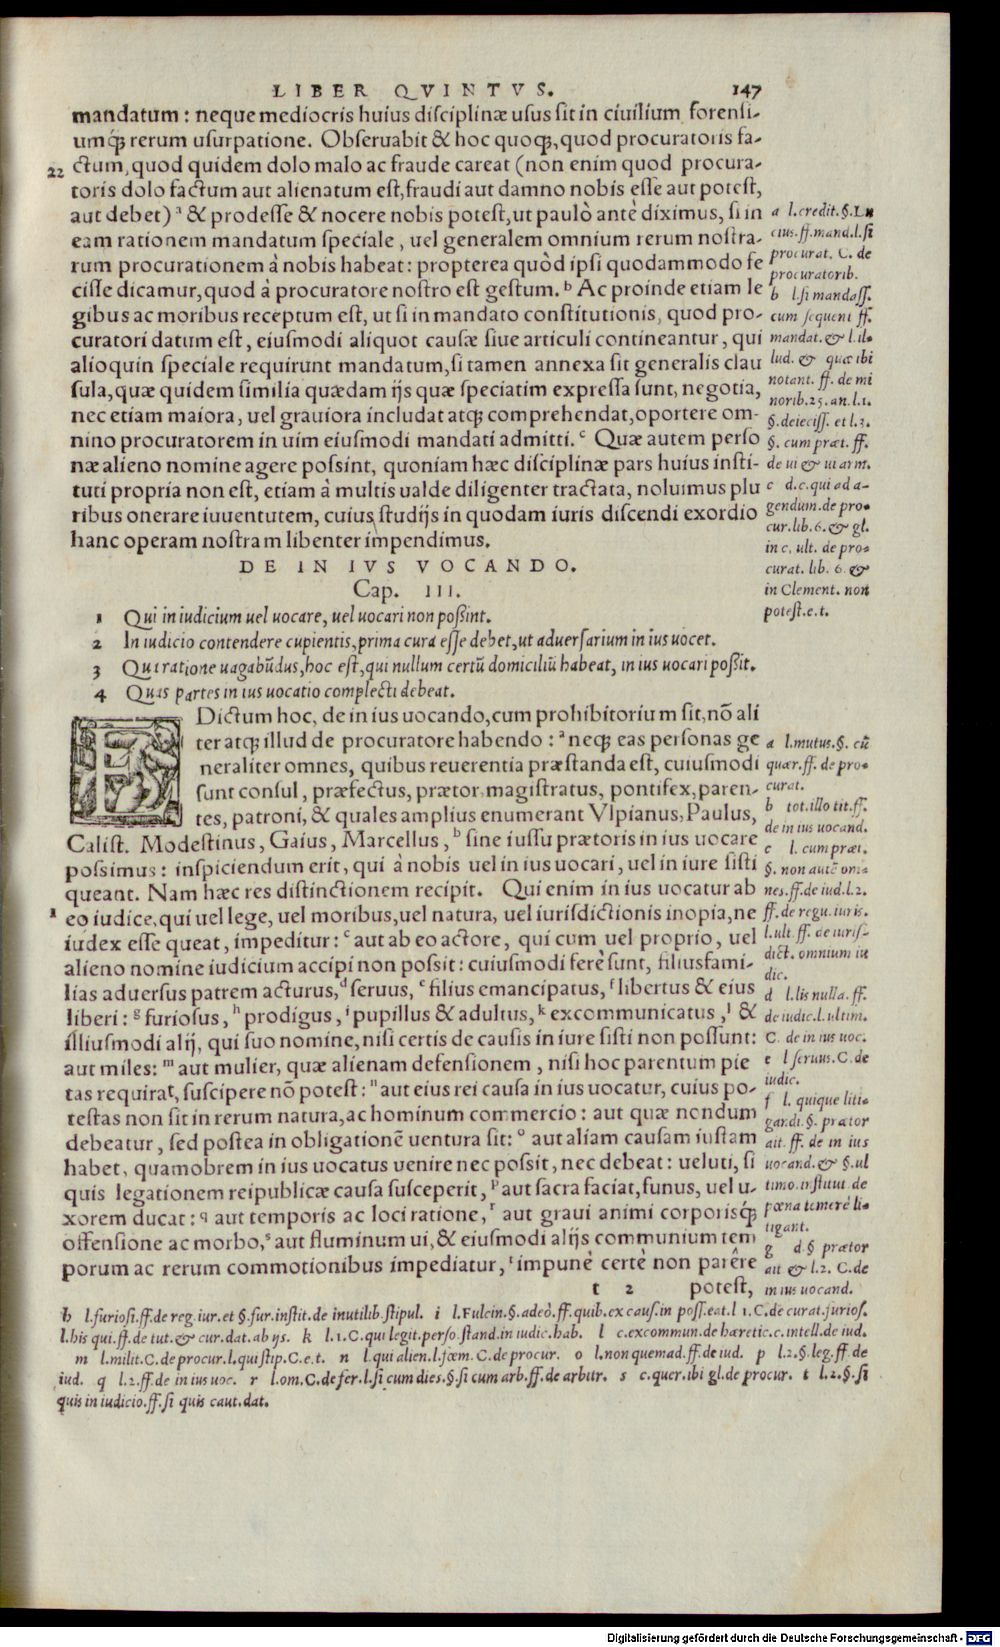 LIBER QVINTVS. 147
mandatum: neque mediocris huius disciplinæ usus sit in ciuilium forensi-
umq́; rerum usurpatione. Obseruabit & hoc quoq;, quod procuratoris fa-
22 ctum, quod quidem dolo malo ac fraude careat (non enim quod procura-
toris dolo factum aut alienatum est, fraudi aut damno nobis esse aut potest,
aut debet) a & prodesse & nocere nobis potest, ut paulò antè diximus, si in
eam rationem mandatum speciale, uel generalem omnium rerum nostra-
rum procurationem à nobis habeat: propterea quòd ipsi quodammodo fe
cisse dicamur, quod à procuratore nostro est gestum. b Ac proinde etiam le
gibus ac moribus receptum est, ut si in mandato constitutionis, quod pro-
curatori datum est, eiusmodi aliquot causæ siue articuli contineantur, qui
alioquin speciale requirunt mandatum, si tamen annexa sit generalis clau
sula, quæ quidem similia quædam ijs quæ speciatim expressa sunt, negotia,
nec etiam maiora, uel grauiora includat atq; comprehendat, oportere om-
nino procuratorem in uim eiusmodi mandati admitti. c Quæ autem perso
næ alieno nomine agere possint, quoniam hæc disciplinæ pars huius insti-
tuti propria non est, etiam à multis ualde diligenter tractata, noluimus plu
ribus onerare iuuentutem, cuius studijs in quodam iuris discendi exordio
hanc operam nostram libenter impendimus.
a l.credit.§.Lu
cius.ff.mand.l.si
procurat. C. de
procuratorib.
b l.si mandass.
cum sequent ff.
mandat. & l.il-
lud. & quæ ibi
notant. ff. de mi
norib.25.an.l.1.
§.deieciss. et l.3.
§. cum præt. ff.
de ui & ui arm.
c d.c.qui ad a-
gendum.de pro-
cur.lib.6.& gl.
in c. ult. de pro-
curat. lib. 6. &
in Clement. non
potest.e.t.
DE IN IVS VOCANDO.
Cap. III.
1 Qui in iudicium uel uocare, uel uocari non possint.
2 In iudicio contendere cupientis, prima cura esse debet, ut aduersarium in ius uocet.
3 Qui ratione uagabũdus, hoc est, qui nullum certũ domiciliũ habeat, in ius uocari possit.
4 Quas partes in ius uocatio complecti debeat.
EDictum hoc, de in ius uocando, cum prohibitorium sit, nõ ali
ter atq; illud de procuratore habendo: a neq; eas personas ge
neraliter omnes, quibus reuerentia præstanda est, cuiusmodi
sunt consul, præfectus, prætor, magistratus, pontifex, paren-
tes, patroni, & quales amplius enumerant Vlpianus, Paulus,
Calist. Modestinus, Gaius, Marcellus, b sine iussu prætoris in ius uocare
possimus: inspiciendum erit, qui à nobis uel in ius uocari, uel in iure sisti
queant. Nam hæc res distinctionem recipit. Qui enim in ius uocatur ab
1 eo iudice, qui uel lege, uel moribus, uel natura, uel iurisdictionis inopia, ne
iudex esse queat, impeditur: c aut ab eo actore, qui cum uel proprio, uel
alieno nomine iudicium accipi non possit: cuiusmodi ferè sunt, filiusfami-
lias aduersus patrem acturus, d seruus, e filius emancipatus, f libertus & eius
liberi: g furiosus, h prodigus, i pupillus & adultus, k excommunicatus, l &
illiusmodi alij, qui suo nomine, nisi certis de causis in iure sisti non possunt:
aut miles: m aut mulier, quæ alienam defensionem, nisi hoc parentum pie
tas requirat, suscipere nõ potest: n aut eius rei causa in ius uocatur, cuius po-
testas non sit in rerum natura, ac hominum commercio: aut quæ nondum
debeatur, sed postea in obligationẽ uentura sit: o aut aliam causam iustam
habet, quamobrem in ius uocatus uenire nec possit, nec debeat: ueluti, si
quis legationem reipublicæ causa susceperit, p aut sacra faciat, funus, uel u-
xorem ducat: q aut temporis ac loci ratione, r aut graui animi corporisq́;
offensione ac morbo, s aut fluminum ui, & eiusmodi alijs communium tem
porum ac rerum commotionibus impediatur, t impunè certè non parêre
t 2 potest,
a l.mutus.§. cũ
quær.ff. de pro-
curat.
b tot.illo tit.ff.
de in ius uocand.
c l. cum præt.
§. non autẽ om-
nes.ff.de iud.l.2.
ff.de regu.iuris.
l.ult. ff. de iuris-
dict. omnium iu
dic.
d l.lis nulla. ff.
de iudic.l.ultim.
C. de in ius uoc.
e l seruus.C.de
iudic.
f l. quique liti-
gandi.§. prætor
ait. ff. de in ius
uocand. & §.ul
timo.institut. de
pœna temerè li-
tigant.
g d.§ prætor
ait & l.2. C.de
in ius uocand.
h l.furiosi.ff.de reg.iur.et §.fur.instit.de inutilib.stipul. i l.Fulcin.§.adeò.ff.quib.ex caus.in poss.eat.l 1.C.de curat.furios.
l.his qui.ff.de tut.& cur.dat.ab ijs. k l.1.C.qui legit.perso.stand.in iudic.hab. l c.excommun.de hæretic.c.intell.de iud.
m l.milit.C.de procur.l.qui stip.C.e.t. n l.qui alien.l.fœm.C.de procur. o l.non quemad.ff.de iud. p l.2.§.leg.ff.de
iud. q l.2.ff.de in ius uoc. r l.om.C.de fer.l.si cum dies.§.si cum arb.ff.de arbitr. s c.quer.ibi gl.de procur. t l.2.§.si
quis in iudicio.ff.si quis caut.dat.
Digitalisierung gefördert durch die Deutsche Forschungsgemeinschaft - DFG